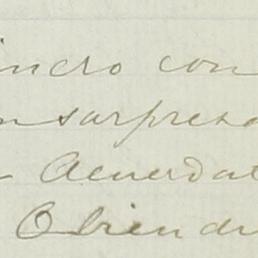 incro con
n sarpresa
Acuerdat
Obien dr